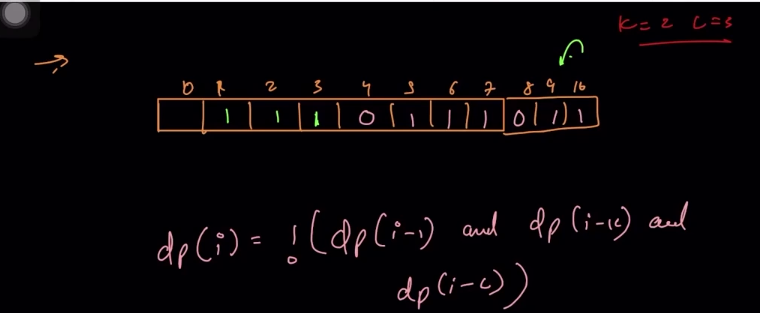 K=2 L=3
0 1 2 3 4 5 6 7 8 9 10
1 1 1 0 1 1 1 0 1 1
dp(i) = !(dp(i-1) and dp(i-K) and
0
dp(i-L))